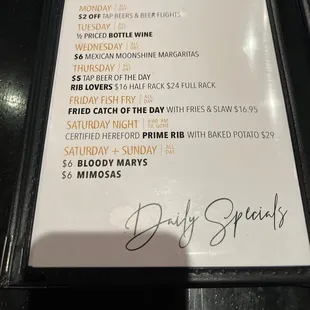 MONDAY | ALL DAY
$2 OFF TAP BEERS & BEER FLIGHTS
TUESDAY | ALL DAY
½ PRICED BOTTLE WINE
WEDNESDAY | ALL DAY
$6 MEXICAN MOONSHINE MARGARITAS
THURSDAY | ALL DAY
$5 TAP BEER OF THE DAY
RIB LOVERS $16 HALF RACK $24 FULL RACK
FRIDAY FISH FRY | ALL DAY
FRIED CATCH OF THE DAY WITH FRIES & SLAW $16.95
SATURDAY NIGHT | TIL GONE
CERTIFIED HEREFORD PRIME RIB WITH BAKED POTATO $29
SATURDAY + SUNDAY | ALL DAY
$6 BLOODY MARYS
$6 MIMOSAS
Daily Specials